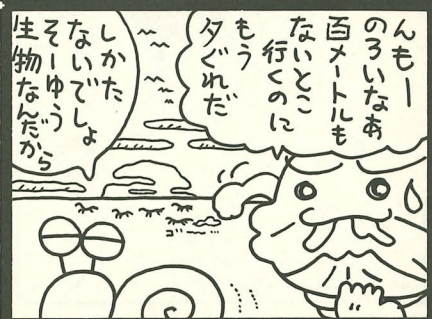 んもー
のろいなあ
百メートルも
ないとこ
行くのに
もう
夕ぐれだ
しかた
ないでしょ
そーゆう
生物なんだから
ゴーーー